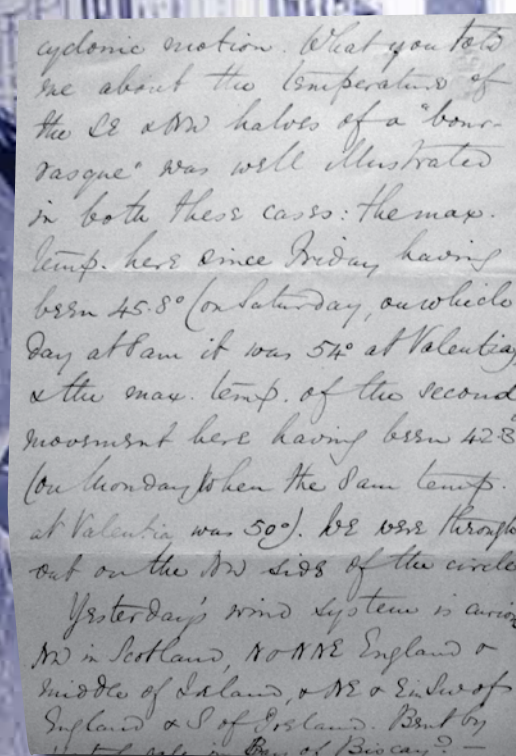 cyclonic motion. What you told
me about the temperature of
the SE & NW halves of a "bour-
rasque" was well illustrated
in both these cases: the max.
temp. here since Friday having
been 45.8° (on Saturday, on which
day at 8am it was 54° at Valentia,
& the max. temp. of the second
movement here having been 42.8°
(on Monday when the 8am temp.
at Valentia was 50°). We were through
out on the NW side of the circle
Yesterday's wind system is curious
NW in Scotland, N & NNE England &
middle of Ireland, & NE & E in SW of
England & S of Ireland. Bent by
gale in Bay of Biscay? —